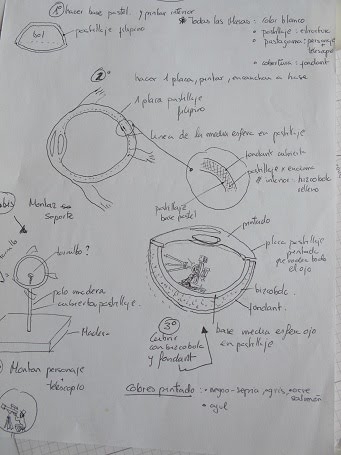 1º hacer base pastel. y pintar interior
bol
pastillaje
filipino
* Todas las masas: color blanco
• pastillaje: estructura
• pastagoma: personaje
telescopio
• cobertura: fondant
2º
hacer 1 placa, pintar, enganchar a base
1 placa pastillaje
filipino
linea de la media esfera en pastillaje
fondant cubierta
pastillaje x encima
interior: bizcocho
relleno
Montaz
soporte
tornillo?
palo madera
cubierto pastillaje.
Madera
Montar personaje
+ telescopio
pastillaje
base pastel
pintado
placa pastillaje
pintada
el ojo
bizcocho.
fondant.
base media esfera ojo
en pastillaje
3º
Cubrir
con bizcocho
y fondant
colores pintado: • negro-sepia, gris, ocre
salmón
• azul